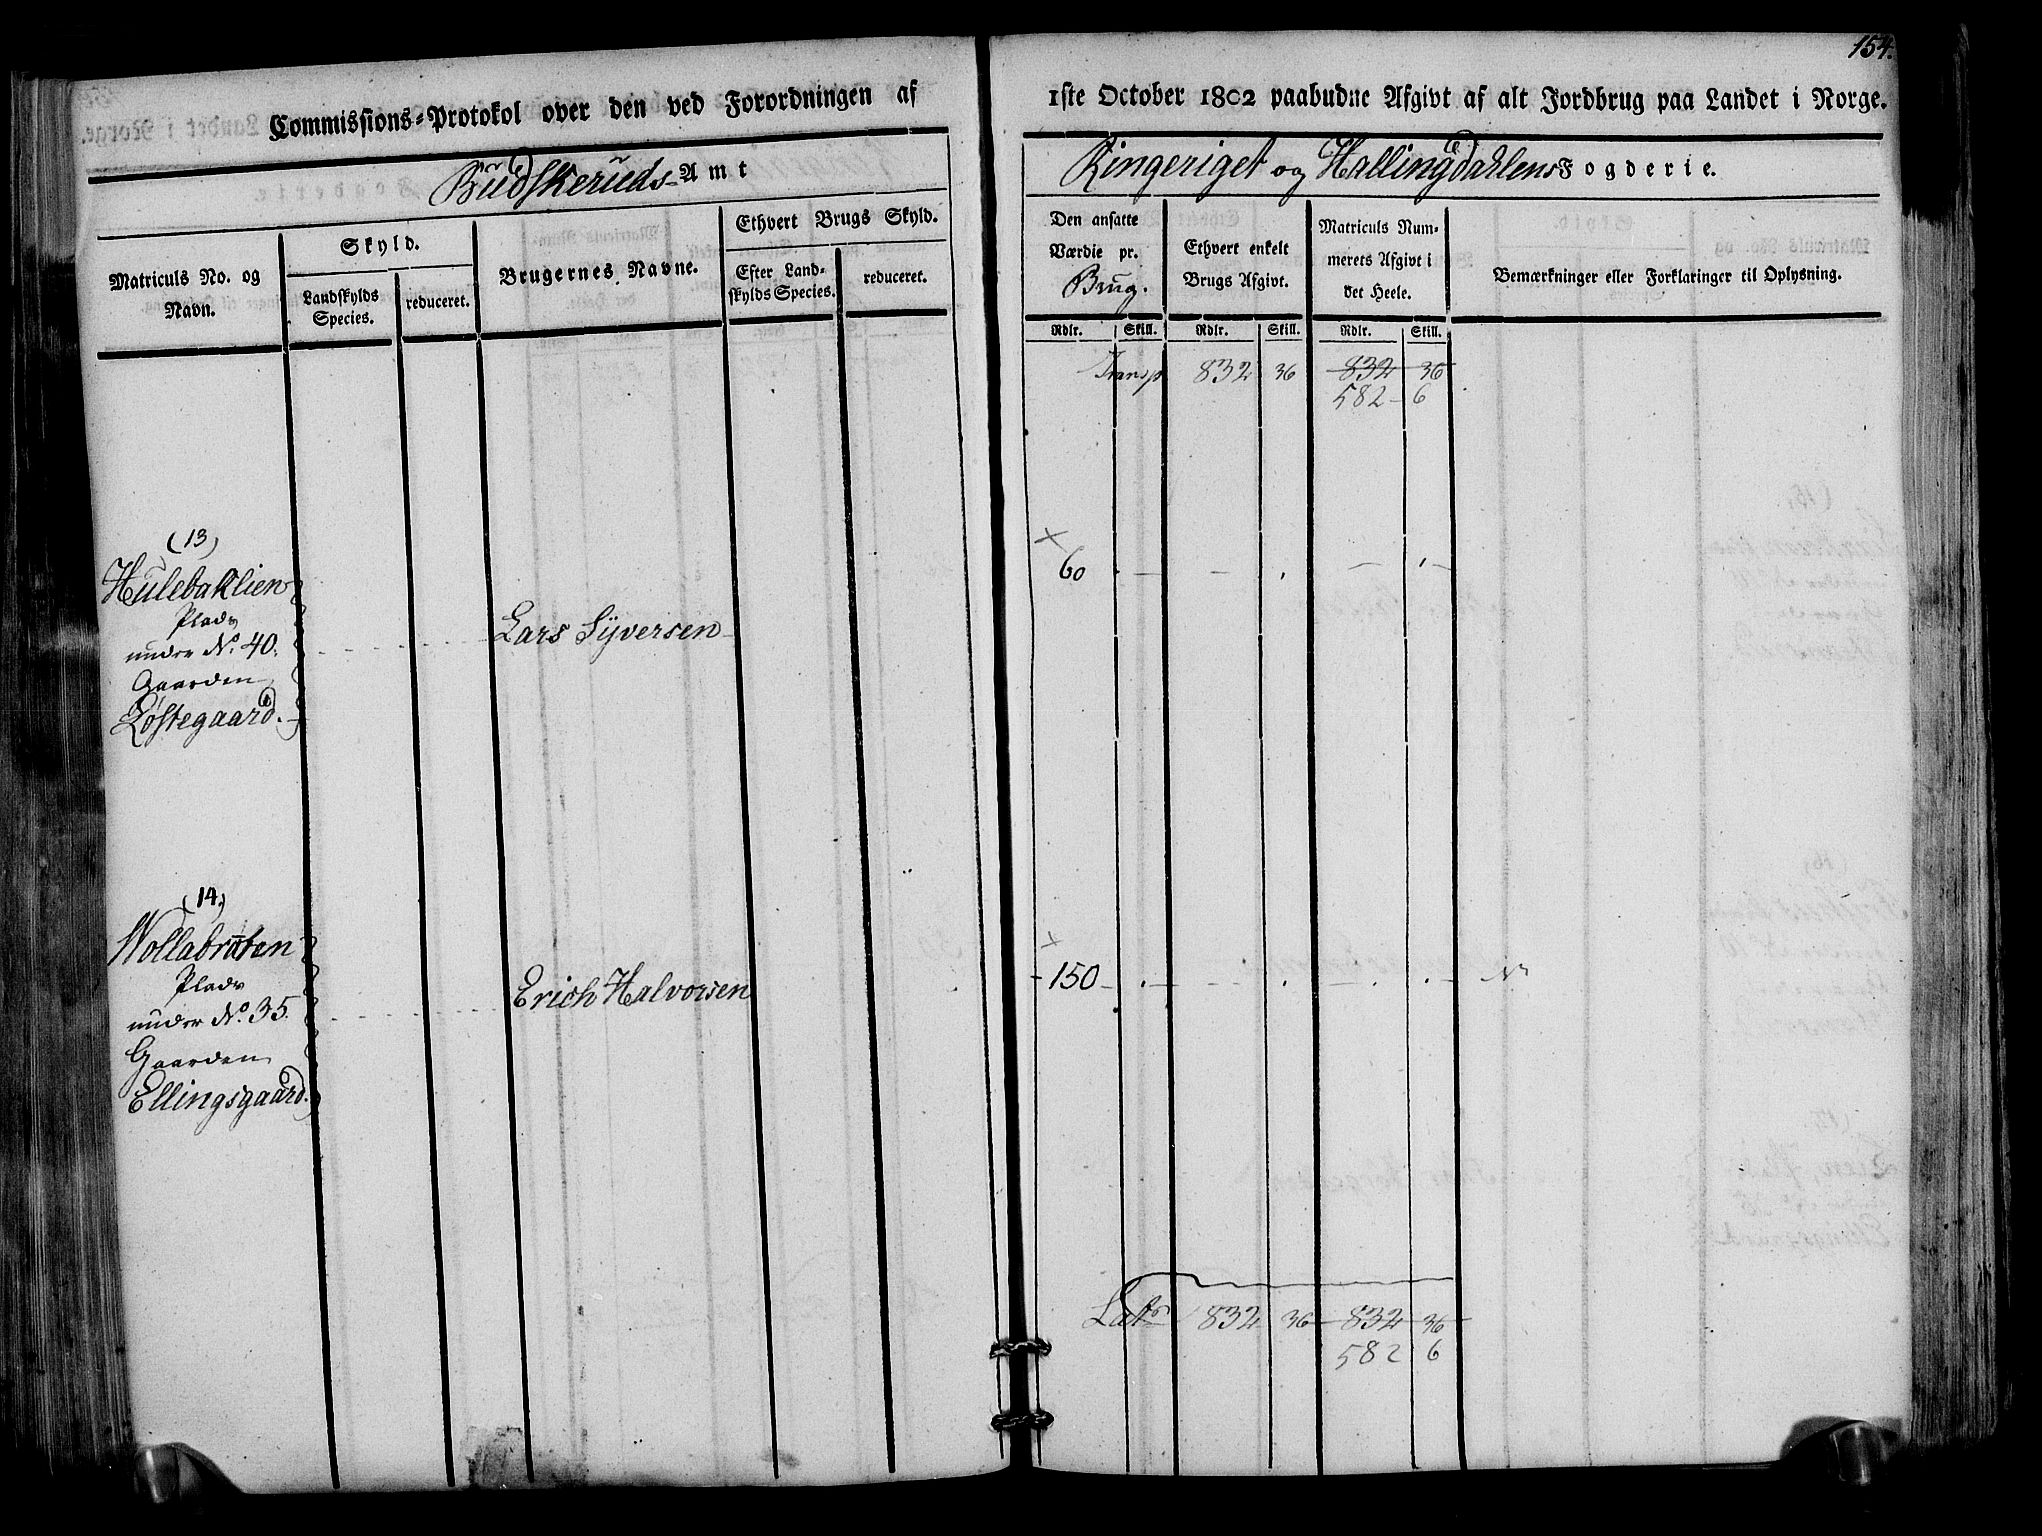 154.
Commissions-Protokol over den ved Forordningen af
1ste October 1802 paabudne Afgivt af alt Jordbrug paa Landet i Norge.
Budskeruds Amt
Ringeriget og Hallingdahlens Fogderie.
Matriculs No. og
Navn.
Skyld.
Landskylds
Species.
reduceret.
Brugernes Navne.
Ethvert Brugs Skyld.
Efter Land-
skylds Species.
reduceret.
Den ansatte
Værdie pr.
Brug.
Ethvert enkelt
Brugs Afgivt.
Matriculs Num-
merets Afgivt i
det Heele.
Bemærkninger eller Forklaringer til Oplysning.
Rdlr. Skill. Rdlr. Skill. Rdlr. Skill.
Transp 832 36 832 36
582 - 6
(13)
Hulebaklien
Plads
under No. 40.
Gaarden
Løstegaard.
Lars Syversen
60
(14)
Wollabraten
Plads
under No. 35.
Gaarden
Ellingsgaard.
Erich Halvorsen
150
Lat 832 36 832 36
582 6